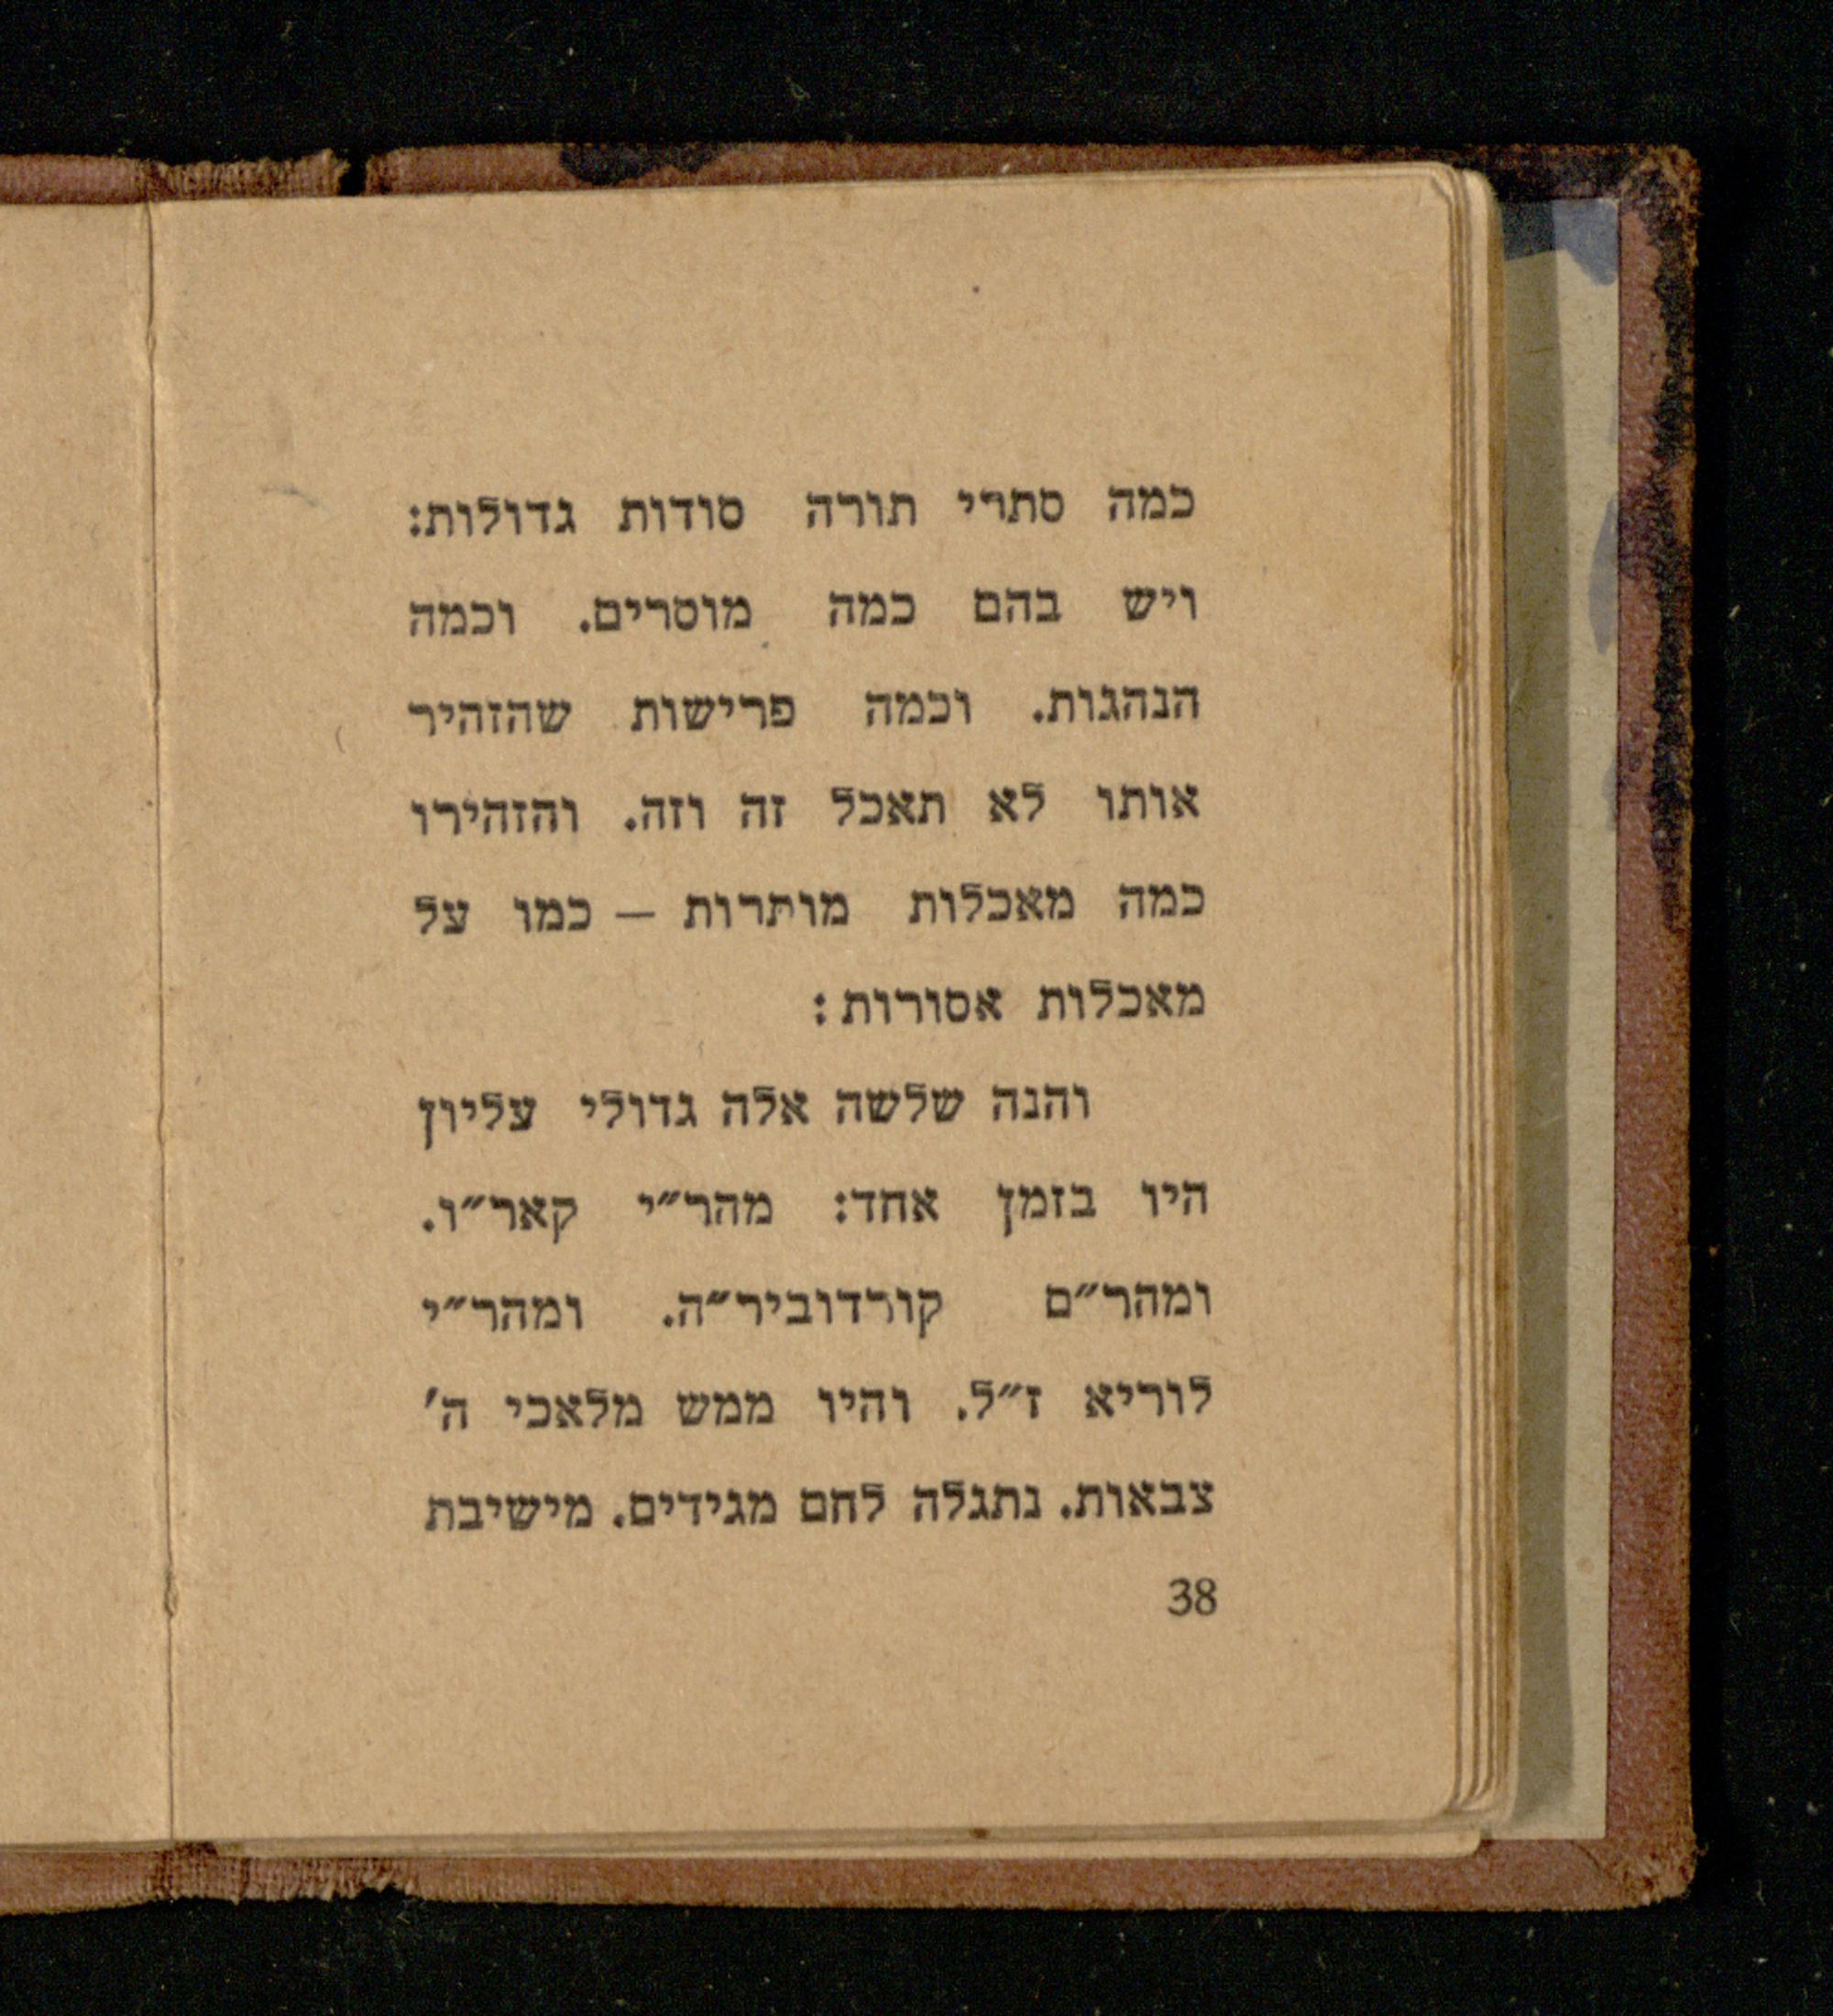 כמה סתרי תורה סודות גדולות:
ויש בהם כמה מוסרים. וכמה
הנהגות. וכמה פרישות שהזהיר
אותו לא תאכל זה וזה. והזהירו
כמה מאכלות מותרות – כמו על
מאכלות אסורות:
והנה שלשה אלה גדולי עליון
היו בזמן אחד: מהר״י קאר״ו.
ומהר״ם קורדוביר״ה. ומהר״י
לוריא ז״ל. והיו ממש מלאכי ה׳
צבאות. נתגלה לחם מגידים. מישיבת
38